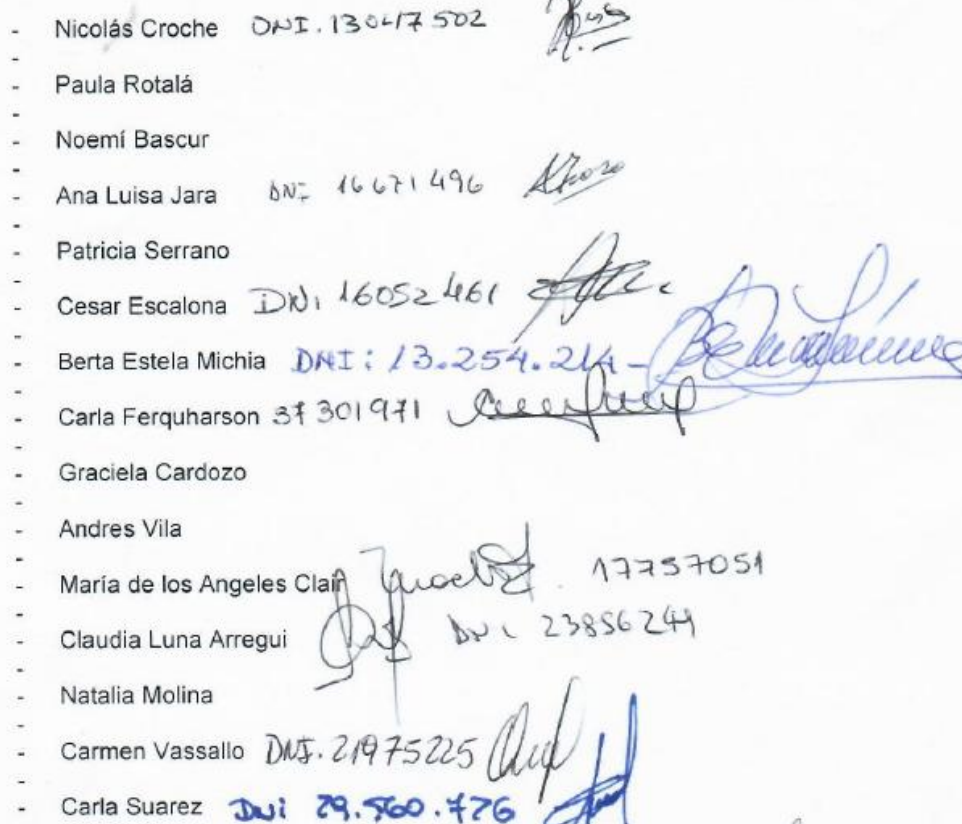 - Nicolás Croche DNI. 13047502
-
- Paula Rotalá
-
- Noemí Bascur
-
- Ana Luisa Jara DNI 16671496
-
- Patricia Serrano
-
- Cesar Escalona DNi 16052461
-
- Berta Estela Michia DNI: 13.254.214-
-
- Carla Ferquharson 37301971
-
- Graciela Cardozo
-
- Andres Vila
-
- María de los Angeles Clair 17757051
-
- Claudia Luna Arregui DNi 23856249
-
- Natalia Molina
-
- Carmen Vassallo DNI. 21975225
-
- Carla Suarez DNi 29.560.726